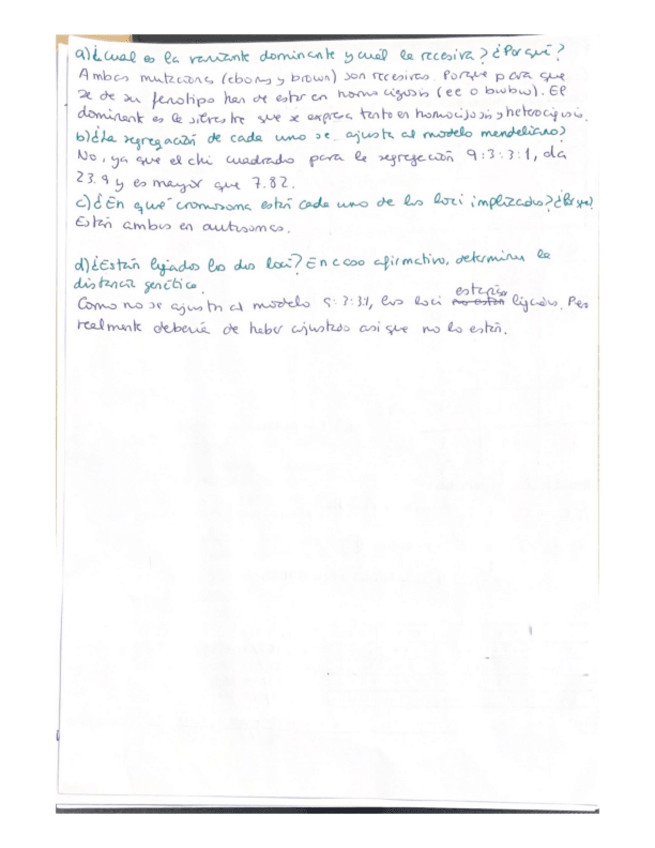 a) ¿Cual es la variante dominante y cuál la recesiva? ¿Por qué?
Ambas mutaciones (ebony y brown) son recesivas. Porque para que
se de su fenotipo han de estar en homocigosis (ee o bwbw). El
dominante es la silvestre que se expresa tanto en homocigosis y heterocigosis.
b) ¿La segregación de cada uno se ajusta al modelo mendeliano?
No, ya que el chi cuadrado para la segregación 9:3:3:1, da
23.9 y es mayor que 7.82.
c) ¿En qué cromosoma está cada uno de los loci implicados? ¿Por qué?
Están ambos en autosomas.
d) ¿Están ligados los dos loci? En caso afirmativo, determina la
distancia genética.
Como no se ajusta al modelo 9:3:3:1, los loci no están estarían ligados. Pero
realmente debería de haber ajustado asi que no lo están.